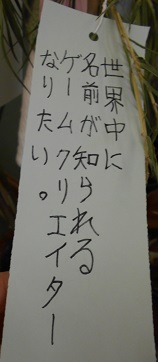 世界中に
名前が知られる
ゲームクリエイター
なりたい。